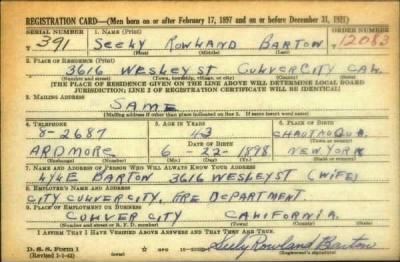 REGISTRATION CARD—(Men born on or after February 17, 1897 and on or before December 31, 1921)
SERIAL NUMBER 1. NAME (Print) ORDER NUMBER
391 SEELY ROWLAND BARTON 12083
(First) (Middle) (Last)
2. PLACE OF RESIDENCE (Print)
3616 WESLEY ST CULVER CITY CAL.
(Number and street) (Town, township, village, or city) (County) (State)
[THE PLACE OF RESIDENCE GIVEN ON THE LINE ABOVE WILL DETERMINE LOCAL BOARD
JURISDICTION; LINE 2 OF REGISTRATION CERTIFICATE WILL BE IDENTICAL]
3. MAILING ADDRESS
SAME
[Mailing address if other than place indicated on line 2. If same insert word same]
4. TELEPHONE 5. AGE IN YEARS 6. PLACE OF BIRTH
8-2687 43 CHAUTAUQUA
DATE OF BIRTH (Town or county)
ARDMORE 6-22-1898 NEW YORK
(Exchange) (Number) (Mo.) (Day) (Yr.) (State or country)
7. NAME AND ADDRESS OF PERSON WHO WILL ALWAYS KNOW YOUR ADDRESS
BARTON 3616 WESLEY ST (WIFE)
8. EMPLOYER'S NAME AND ADDRESS
CITY CULVER CITY, FIRE DEPARTMENT.
9. PLACE OF EMPLOYMENT OR BUSINESS
CULVER CITY CALIFORNIA.
(Number and street or R. F. D. number) (Town) (County) (State)
I AFFIRM THAT I HAVE VERIFIED ABOVE ANSWERS AND THAT THEY ARE TRUE.
D. S. S. Form 1
(Revised 1-1-42) GPO Seely Rowland Barton
(Registrant's signature)